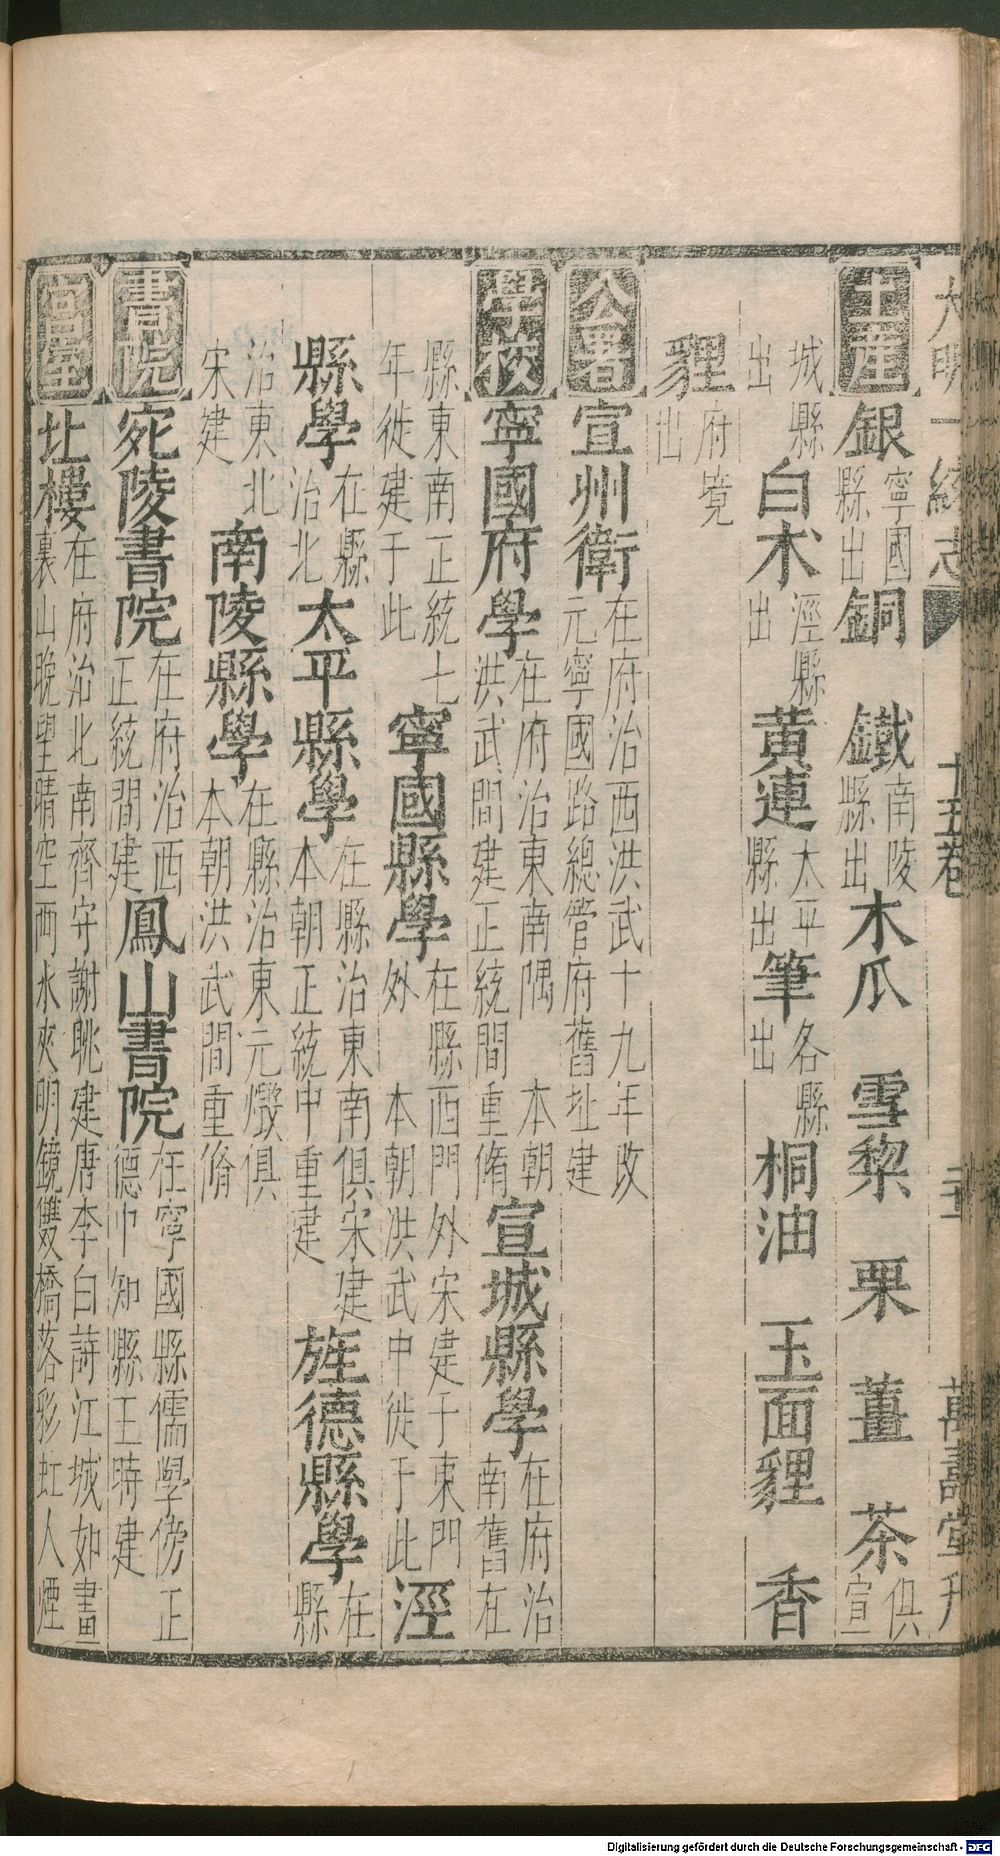 大明一統志 十五卷 萬壽堂刊
土產 銀寧國縣出銅 鐵南陵縣出木瓜 雪梨 栗 薑 茶俱宣
城縣出白朮涇縣出黄連太平縣出筆各縣出桐油 玉面貍 香
貍府境出
公署 宣州衛在府治西洪武十九年改元寧國路總管府舊址建
學校 寧國府學在府治東南隅 本朝洪武間建正統間重脩宣城縣學在府治南舊在
縣東南正統七年徙建于此寧國縣學在縣西門外宋建于東門外 本朝洪武中徙于此涇
縣學在縣治北太平縣學在縣治東南俱宋建本朝正統中重建旌德縣學在縣
治東北宋建南陵縣學在縣治東元燬俱本朝洪武間重脩
書院 宛陵書院在府治西正統間建鳳山書院在寧國縣儒學傍正德中知縣王時建
宫室 北樓在府治北南齊守謝眺建唐李白詩江城如畫裏山晚望晴空兩水夾明鏡雙橋落彩虹人煙
Digitalisierung gefördert durch die Deutsche Forschungsgemeinschaft - DFG